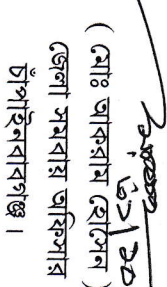 ২১/১০
( মোঃ আকরাম হোসেন )
জেলা সমবায় অফিসার
চাঁপাইনবাবগঞ্জ।